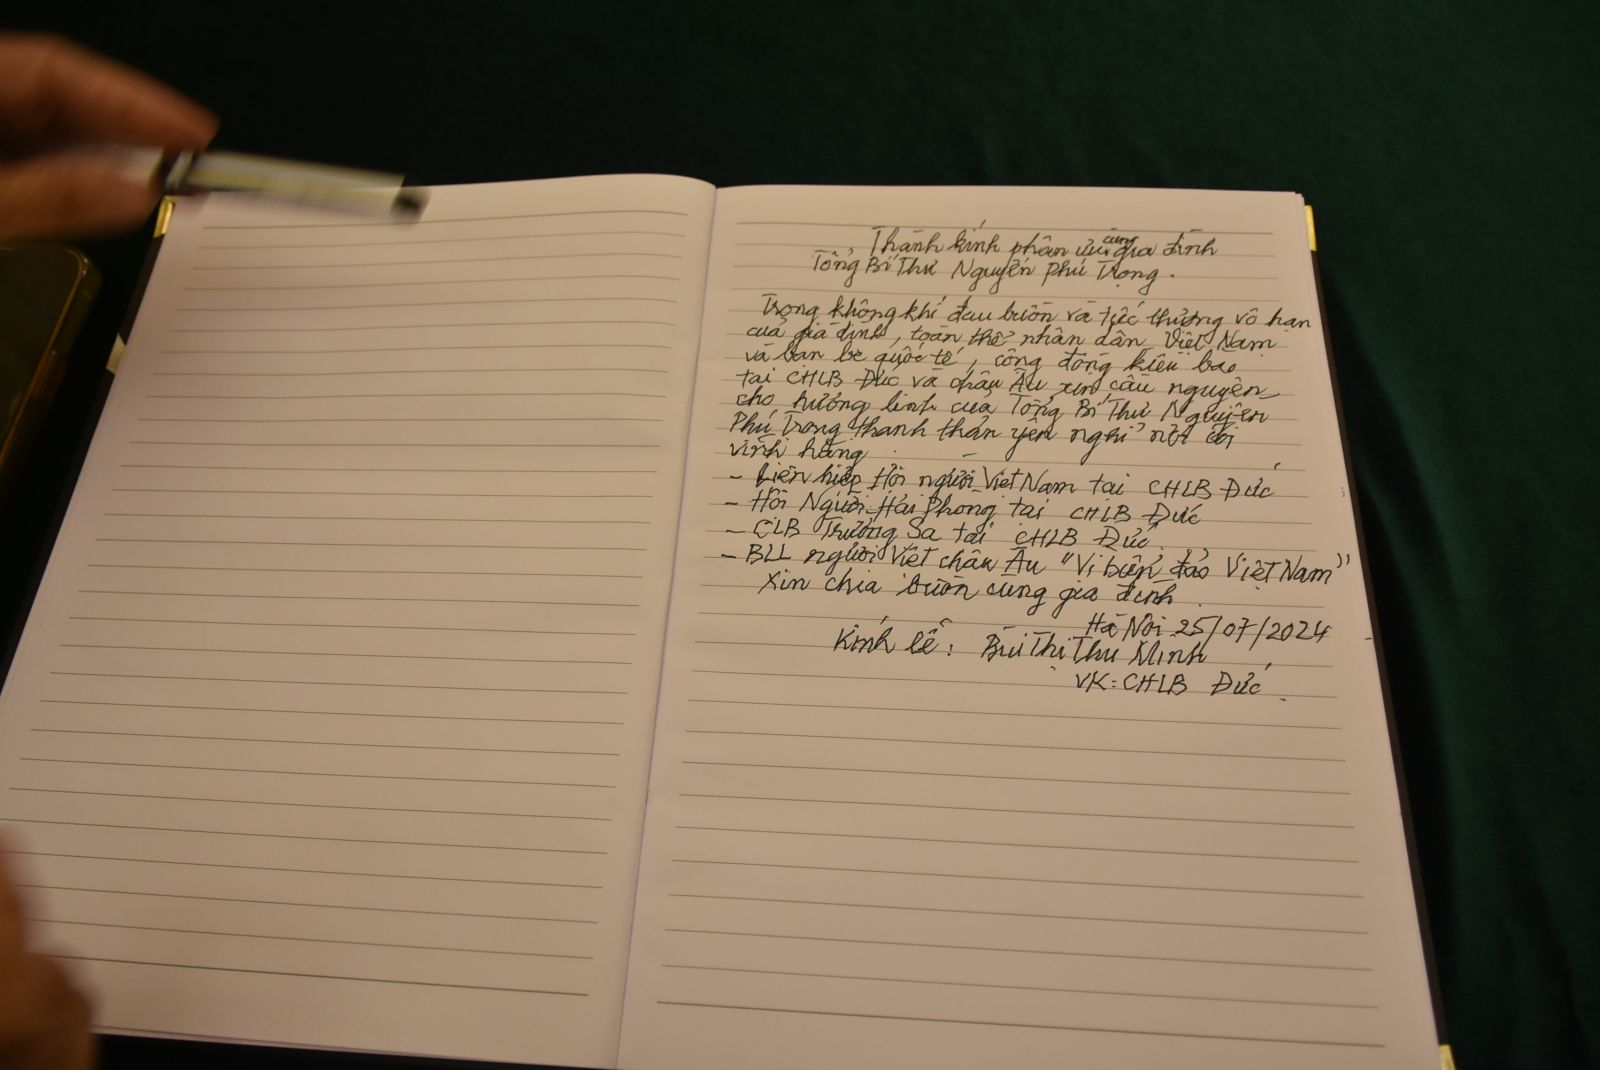 Thành kính phân ưu cùng gia đình
Tổng Bí Thư Nguyễn Phú Trọng.
Trong không khí đau buồn và tiếc thương vô hạn
của gia đình, toàn thể nhân dân Việt Nam
và bạn bè quốc tế, cộng đồng kiều bào
tại CHLB Đức và châu Âu xin cầu nguyện
cho hương linh của Tổng Bí Thư Nguyễn
Phú Trọng thanh thản yên nghỉ nơi cõi
vĩnh hằng.
- Liên hiệp Hội người Việt Nam tại CHLB Đức
- Hội Người Hải Phòng tại CHLB Đức
- CLB Trường Sa tại CHLB Đức.
- BLL người Việt châu Âu "Vì biển đảo Việt Nam"
Xin chia buồn cùng gia đình.
Hà Nội 25/07/2024
Kính lễ: Bùi Thị Thu Minh
VK: CHLB Đức.